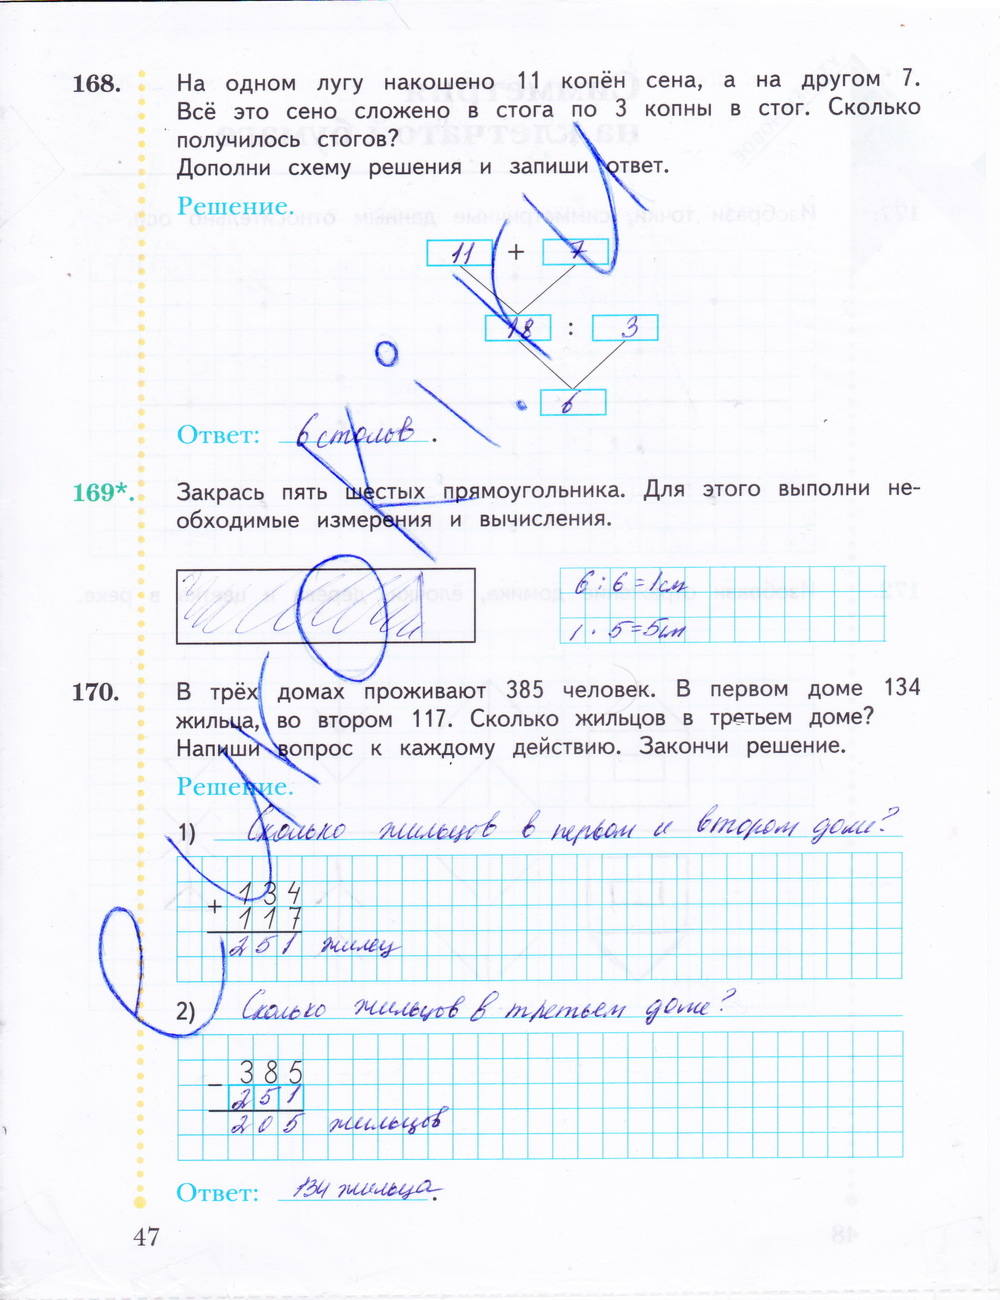 168. На одном лугу накошено 11 копён сена, а на другом 7.
Всё это сено сложено в стога по 3 копны в стог. Сколько
получилось стогов?
Дополни схему решения и запиши ответ.
Решение.
11 + 7
18 : 3
6
Ответ: 6 столов.
169*. Закрась пять шестых прямоугольника. Для этого выполни не-
обходимые измерения и вычисления.
6 : 6 = 1 см
1 · 5 = 5 см
170. В трёх домах проживают 385 человек. В первом доме 134
жильца, во втором 117. Сколько жильцов в третьем доме?
Напиши вопрос к каждому действию. Закончи решение.
Решение.
1) Сколько жильцов в первом и втором доме?
134
+ 117
251 жилец
2) Сколько жильцов в третьем доме?
– 385
251
205 жильцов
Ответ: 134 жильца.
47